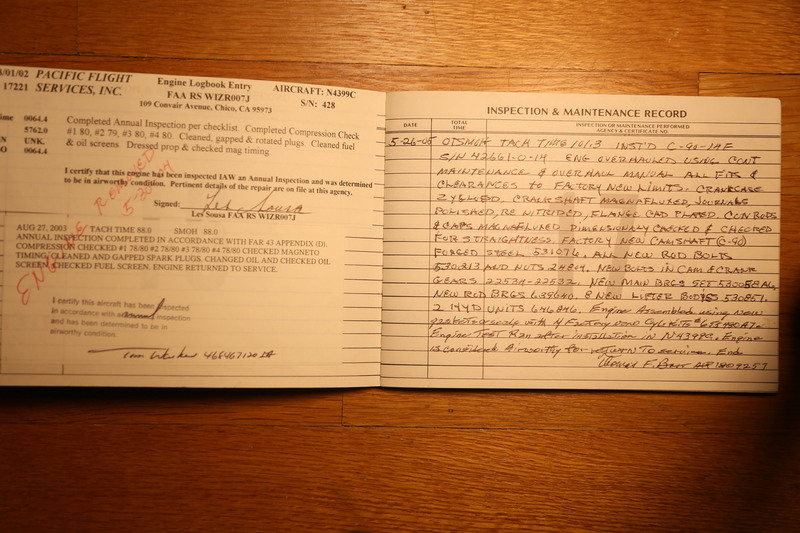 /01/02 PACIFIC FLIGHT
17221 SERVICES, INC.
Engine Logbook Entry
FAA RS WIZR007J
109 Convair Avenue, Chico, CA 95973
AIRCRAFT: N4399C
S/N: 428
0064.4
5762.0
UNK.
0064.4
Completed Annual Inspection per checklist. Completed Compression Check
#1 80, #2 79, #3 80, #4 80. Cleaned, gapped & rotated plugs. Cleaned fuel
& oil screens. Dressed prop & checked mag timing.
I certify that this engine has been inspected IAW an Annual Inspection and was determined
to be in airworthy condition. Pertinent details of the repair are on file at this agency.
Signed: Les Sousa
Les Sousa FAX RS WIZR007J
ENGINE REMOVED
AUG 27, 2003 TACH TIME 88.0 SMOH 88.0
ANNUAL INSPECTION COMPLETED IN ACCORDANCE WITH FAR 43 APPENDIX (D).
COMPRESSION CHECKED #1 78/80 #2 78/80 #3 78/80 #4 78/80 CHECKED MAGNETO
TIMING, CLEANED AND GAPPED SPARK PLUGS. CHANGED OIL AND CHECKED OIL
SCREEN, CHECKED FUEL SCREEN. ENGINE RETURNED TO SERVICE.
I certify this aircraft has been inspected
in accordance with annual inspection
and has been determined to be in
airworthy condition.
INSPECTION & MAINTENANCE RECORD
DATE
TOTAL TIME
INSPECTION OR MAINTENANCE PERFORMED
AGENCY & CERTIFICATE NO.
TACH TIME 1013 INST'D C-90-14F
S/N 42661-0-14 ENG OVERHAULED USING CONT
MAINTENANCE & OVERHALL MANUAL ALL FITS &
CLEARANCES TO FACTORY NEW LIMITS. CRANKCASE
ZYGLOED, CRANKSHAFT MAGNAFLUXED, JOURNALS
POLISHED, RE NITRIDED, FLANGE CAD PLATED. CON RODS
& CAPS MAGNAFLUXED DIMENSIONALY CHECKED & CHECKED
FOR STRAIGHTNESS. FACTORY NEW CAMSHAFT (C-90)
FORGED STEEL 531076, ALL NEW ROD BOLTS
530213 AND NUTS 24804. NEW BOLTS IN CAM & CRANK
GEARS 22534-22532. NEW MAIN BRGS SET
NEW ROD BRGS 639640. 8 NEW LIFTER BODYS 530851.
2 UNITS 646846. Engine Assembled using new
gaskets & seals with 4 Factory new Cyl. Kits
Engine TEST Ran after installation in N4399C. Engine
is considered Airworthy for return To service. End
Thomas F.